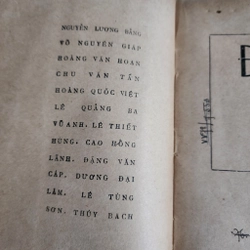 NGUYỄN LƯƠNG BẰNG
VÕ NGUYÊN GIÁP
HOÀNG VĂN HOAN
CHU VĂN TẤN
HOÀNG QUỐC VIỆT
LÊ QUẢNG BA
VŨ ANH, LÊ THIẾT
HÙNG, CAO HỒNG
LÃNH, ĐẶNG VĂN
CÁP, DƯƠNG ĐẠI
LÂM, LÊ TÙNG
SƠN, THÚY BÁCH